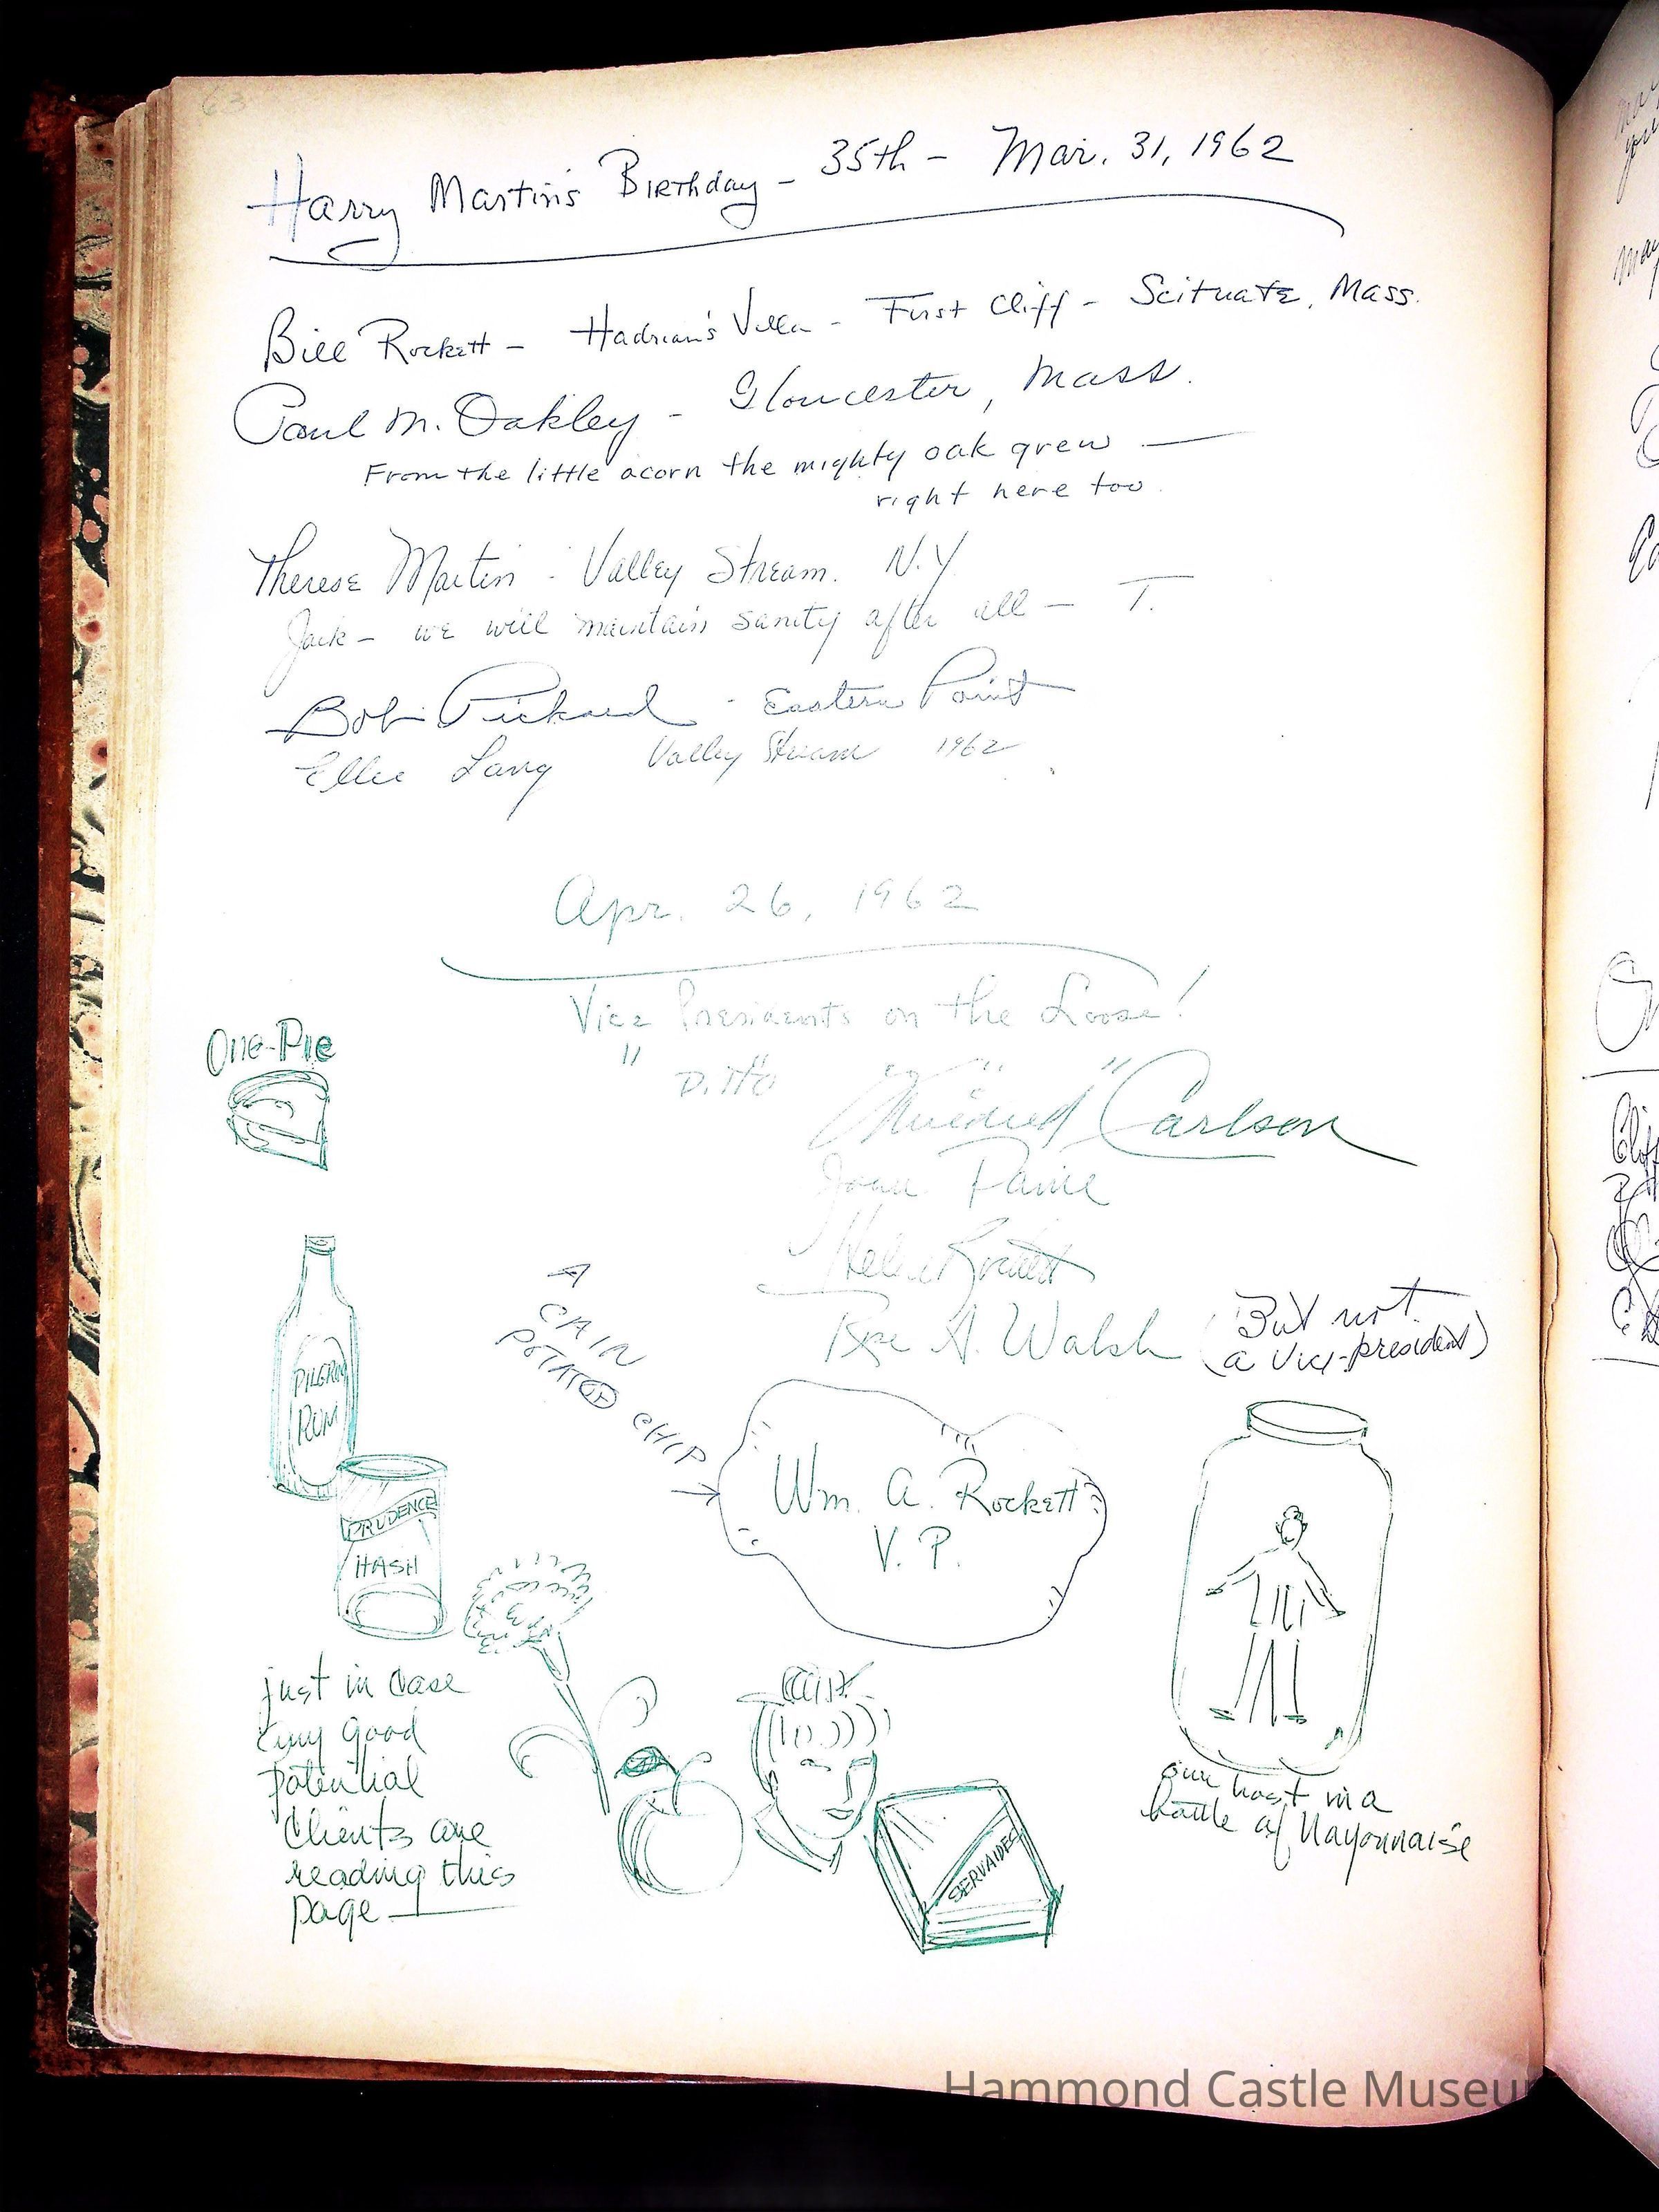 63
Harry Martin's Birthday - 35th - Mar. 31, 1962
Bill Rockett - Hadrian's Villa - First Cliff - Scituate, Mass.
Paul M. Oakley - Gloucester, Mass.
From the little acorn the mighty oak grew —
right here too.
Therese Martin - Valley Stream. N.Y.
Jack - we will maintain sanity after all - T.
Bob Pickard - Eastern Point
Ellie Lang Valley Stream 1962
Apr. 26, 1962
Vice Presidents on the Loose!
" Ditto " " "
Mildred Carlson
Joan Paine
Helen
A. Walsh (But not
a vice-president)
One-Pie
PILGRIM
RUM
PRUDENCE
HASH
A
CAIN
POTATO CHIP
Wm. A. Rockett
V. P.
just in case
any good
potential
clients are
reading this
page
SERVAIDES
our host in a
bottle of Mayonnaise
Hammond Castle Museu